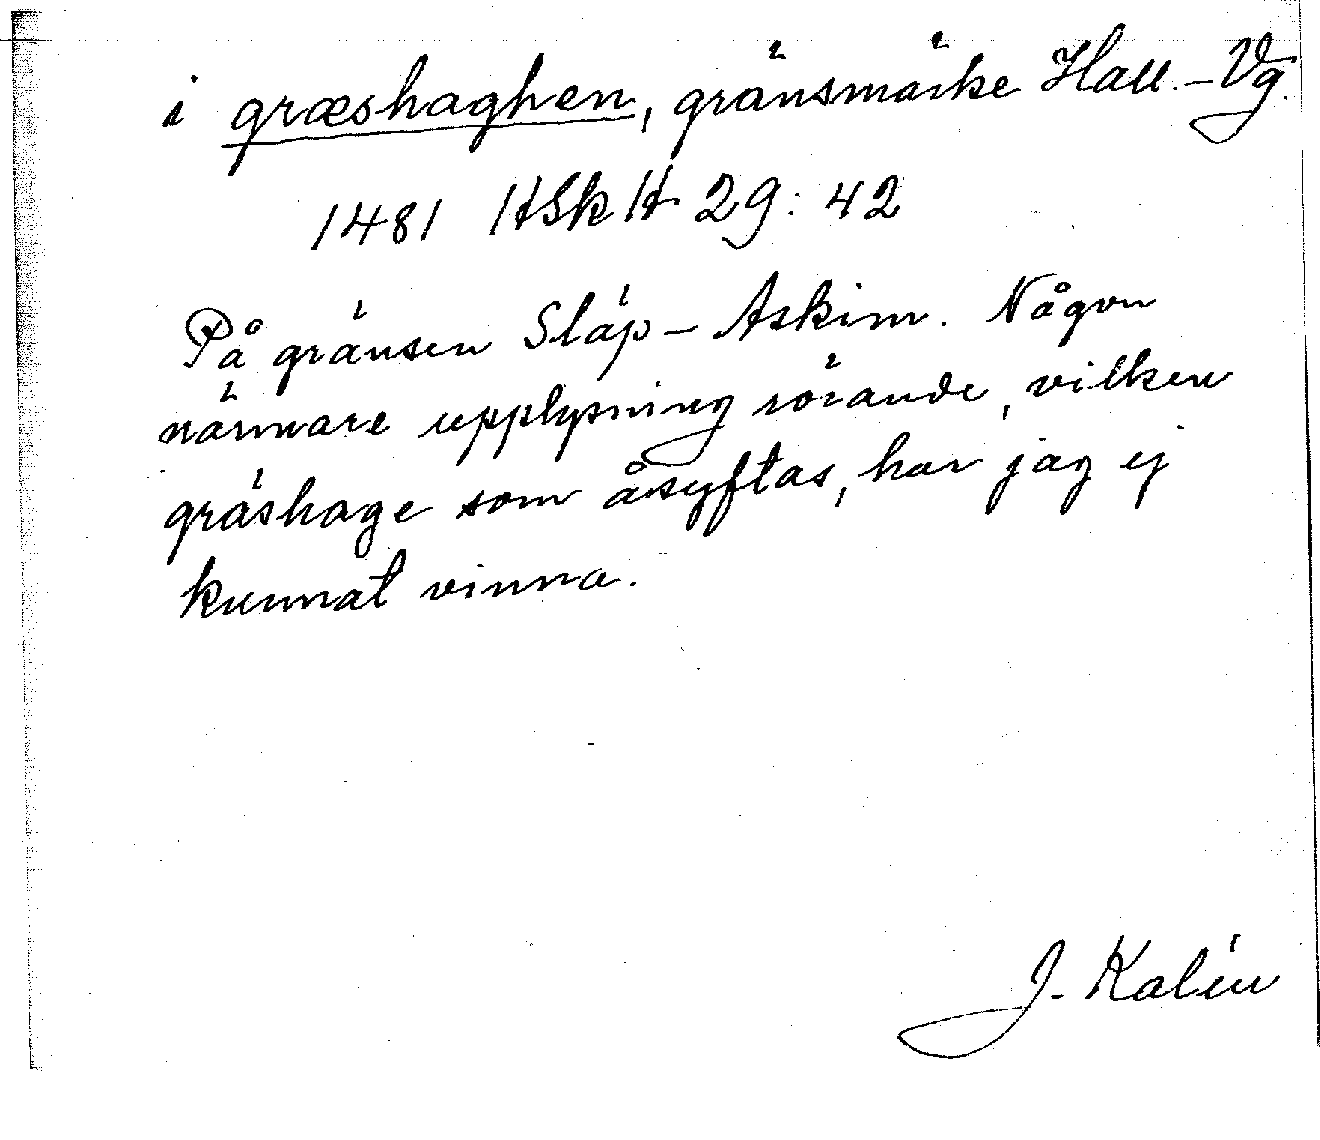 i græshaghen, gränsmärke Hall.-Vg.
1481 HSkH 29:42
På gränsen Släp-Askim. Någon
närmare upplysning rörande, vilken
gräshage som åsyftas, har jag ej
kunnat vinna.
J. Kalén